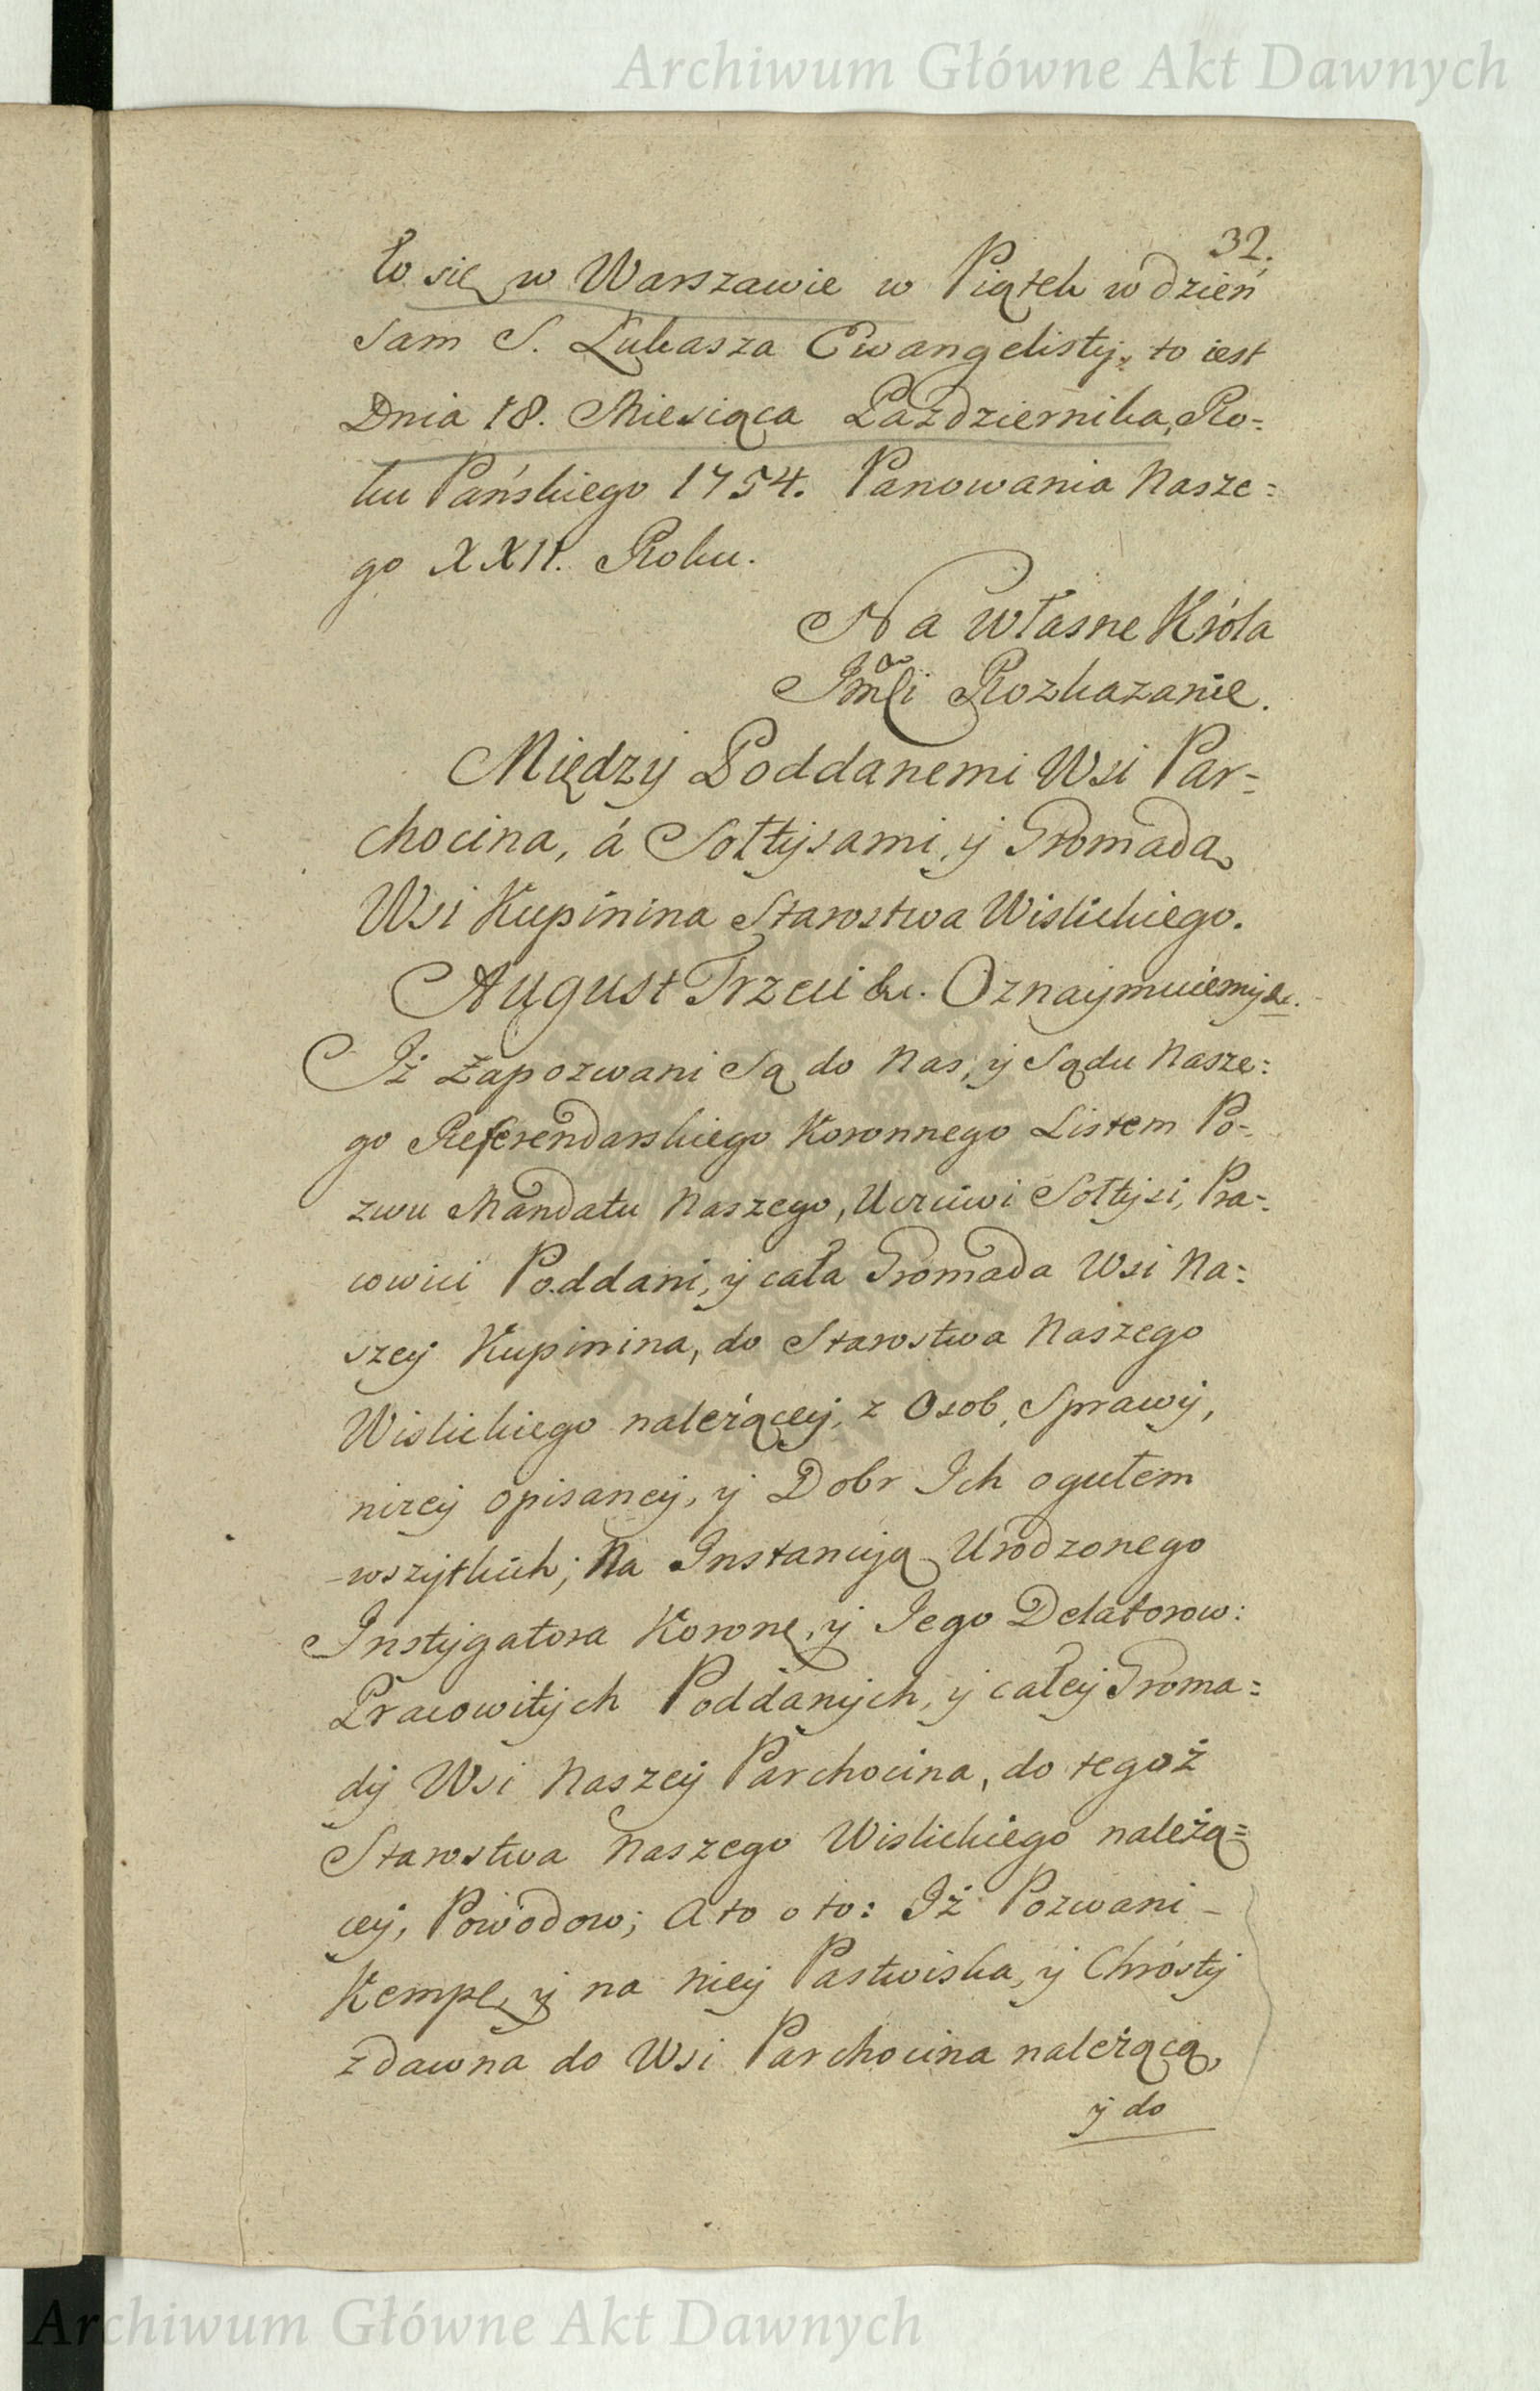 Archiwum Główne Akt Dawnych
32.
ło się w Warszawie w Piątek w dzień
sam S. Łukasza Ewangelisty, to iest
Dnia 18. Miesiąca Października, Ro=
ku Pańskiego 1754. Panowania Nasze=
go XXII. Roku.
Na własne Króla
Jmſci Rozkazanie.
Między Poddanemi Wsi Par=
chocina, á Sołtysami, y Gromadą
Wsi Kupinina Starostwa Wislickiego.
August Trzeci &c. Oznaymuiemy &c.
Iż Zapozwani Są do Nas, y Sądu Nasze=
go Referendarskiego Koronnego Listem Po=
zwu Mandatu Naszego, Uczciwi Sołtysi, Pra=
cowici Poddani, y cała Gromada Wsi Na=
szey Kupinina, do Starostwa Naszego
Wislickiego należącey, z Osob, Sprawy,
niżey opisaney, y Dobr Ich ogułem
wszytkich; Na Instancyą Urodzonego
Instygatora Koronę, y Jego Delatorow:
Pracowitych Poddanych, y całey Groma=
dy Wsi Naszey Parchocina, do tegoż
Starostwa Naszego Wislickiego należą=
cey, Powodow; A to o to: Iż Pozwani
Kempę, y na niey Pastwiska, y Chrósty
zdawna do Wsi Parchocina należącą,
y do
Archiwum Główne Akt Dawnych